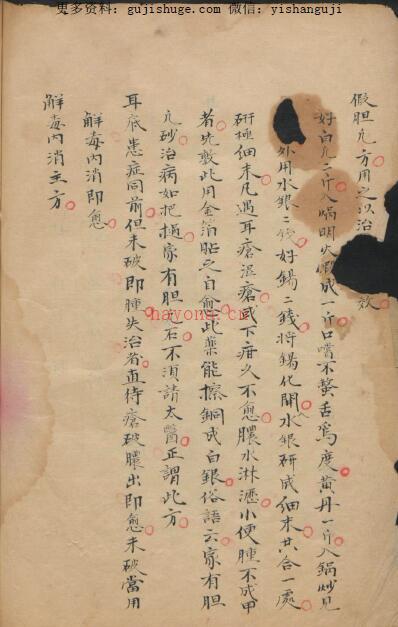 更多资料：gujishuge.com 微信：yishanguji
假胆凡方用之以治 效
好白凡二斤入鍋明火煆成一斤口嚐不螫舌為度黄丹一斤入鍋炒見
外用水銀二錢好錫二錢将錫化開水銀研成細末共合一處
研極細末凡遇耳瘡湿瘡或下疳久不愈膿水淋瀝小便腫不成甲
者先敷此用金箔貼之自愈此藥能擦銅成白銀俗語云家有胆
凡砂治病如把 家有胆凡石不須請太醫正謂此方
耳底患症同前但未破即腫失治者直待瘡破膿出即愈未破當用
解毒内消即愈
解毒内消主方
hayong.cn